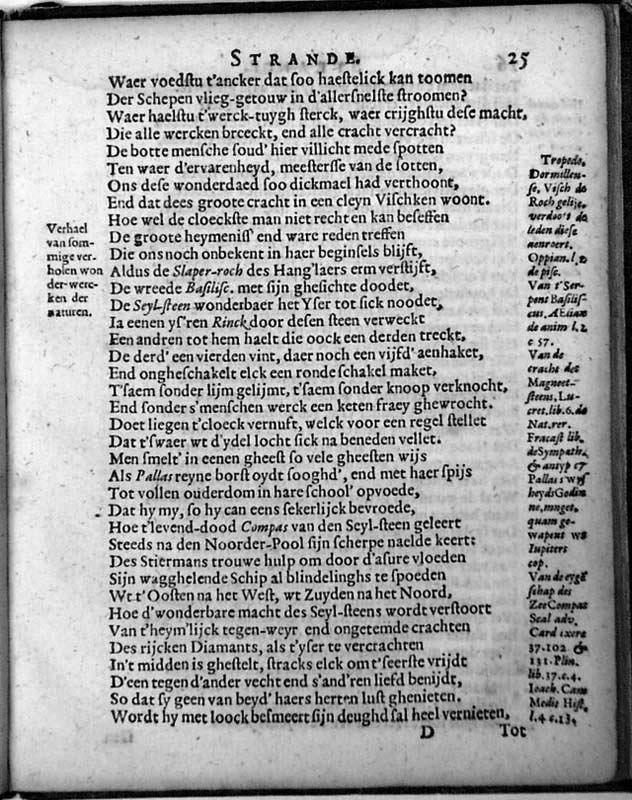 STRANDE. 25
Waer voedstu t'ancker dat soo haestelick kan toomen
Der Schepen vlieg-getouw in d'allersnelste stroomen?
Waer haelstu t'werck-tuygh sterck, waer crijghstu dese macht,
Die alle wercken breeckt, end alle cracht vercracht?
De botte mensche soud' hier villicht mede spotten
Ten waer d'ervarenheyd, meestersse van de sotten,
Ons dese wonderdaed soo dickmael had verthoont,
End dat dees groote cracht in een cleyn Vischken woont.
Hoe wel de cloeckste man niet recht en kan beseffen
De groote heymeniss' end ware reden treffen
Die ons noch onbekent in haer beginsels blijft,
Aldus de Slaper-roch des Hang'laers erm verstijft,
De wreede Basilisc. met sijn ghesichte doodet,
De Seyl-steen wonderbaer het Yser tot sick noodet,
Ia eenen ys'ren Rinck door desen steen verweckt
Een andren tot hem haelt die oock een derden treckt,
De derd' een vierden vint, daer noch een vijfd' aenhaket,
End ongheschakelt elck een ronde schakel maket,
T'saem sonder lijm gelijmt, t'saem sonder knoop verknocht,
End sonder s'menschen werck een keten fraey ghewrocht.
Doet liegen t'cloeck vernuft, welck voor een regel stellet
Dat t'swaer wt d'ydel locht sick na beneden vellet.
Men smelt' in eenen gheest so vele gheesten wijs
Als Pallas reyne borst oydt sooghd', end met haer spijs
Tot vollen ouderdom in hare school' opvoede,
Dat hy my, so hy can eens sekerlijck bevroede,
Hoe t'levend-dood Compas van den Seyl-steen geleert
Steeds na den Noorder-Pool sijn scherpe naelde keert:
Des Stiermans trouwe hulp om door d'asure vloeden
Sijn wagghelende Schip al blindelinghs te spoeden
Wt t'Oosten na het West, wt Zuyden na het Noord,
Hoe d'wonderbare macht des Seyl-steens wordt verstoort
Van t'heym'lijck tegen-weyr end ongetemde crachten
Des rijcken Diamants, als t'yser te vercrachten
In't midden is ghestelt, stracks elck om t'seerste vrijdt
D'een tegen d'ander vecht end s'and'ren liefd benijdt,
So dat sy geen van beyd' haers herten lust ghenieten.
Wordt hy met loock besmeert sijn deughd sal heel vernieten,
D Tot
Verhael
van som-
mige ver-
holen won
der-werc-
ken der
naturen.
Tropede,
Dormillen-
se, Visch de
Roch gelijc,
verdoo't de
leden diese
aenroert.
Oppian. l. 2
de pisc.
Van t'Ser-
pent Basilis-
cus. AElian
de anim l. 2
c 57.
Van de
cracht des
Magneet-
steens, Lu-
cret. lib. 6. de
Nat. rer.
Fracast lib.
de Sympath.
& antyp c7
Pallas s'wijs
heyds Godin
ne, mnget,
quam ge-
wapent wt
Iupiters
cop.
Van de eygē
schap des
Zee Compas
Scal adv.
Card exere
37. 102 &
131. Plin.
lib. 37. c. 4.
Ioach. Cam
Medic Hist.
l. 4 c. 13.